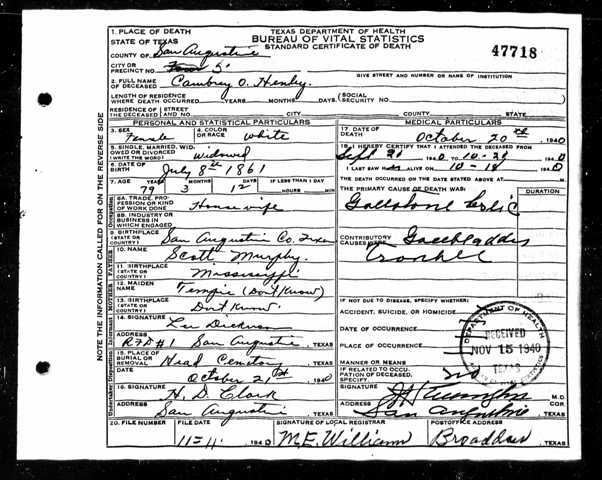 1. PLACE OF DEATH
STATE OF TEXAS
COUNTY OF San Augustine
CITY OR
PRECINCT NO. 5
TEXAS DEPARTMENT OF HEALTH
BUREAU OF VITAL STATISTICS
STANDARD CERTIFICATE OF DEATH
47718
GIVE STREET AND NUMBER OR NAME OF INSTITUTION
2. FULL NAME
OF DECEASED O. Henley
LENGTH OF RESIDENCE
WHERE DEATH OCCURRED YEARS MONTHS DAYS
(SOCIAL
(SECURITY NO.
RESIDENCE OF (STREET
THE DECEASED (AND NO. CITY COUNTY STATE
PERSONAL AND STATISTICAL PARTICULARS
3. SEX
Female
4. COLOR
OR RACE White
5. SINGLE, MARRIED, WID-
OWED OR DIVORCED
(WRITE THE WORD) Widowed
6. DATE OF
BIRTH July 8th 1861
7. AGE YEARS MONTHS DAYS IF LESS THAN 1 DAY
79 3 12 HOURS MIN
8A. TRADE, PRO-
FESSION OR KIND
OF WORK DONE House wife
8B. INDUSTRY OR
BUSINESS IN
WHICH ENGAGED
9. BIRTHPLACE
(STATE OR
COUNTRY) San Augustine Co. Texas
FATHER
10. NAME Scott Murphy
11. BIRTHPLACE
(STATE OR
COUNTRY) Mississippi
MOTHER
12. MAIDEN
NAME Tempie (Don't Know)
13. BIRTHPLACE
(STATE OR
COUNTRY) Don't Know
14. SIGNATURE
ADDRESS
RFD #1 San Augustine, TEXAS
15. PLACE OF
BURIAL OR
REMOVAL Head Cemetery, TEXAS
DATE
October 21st, 1940
16. SIGNATURE
H. D. Clark
ADDRESS
San Augustine, TEXAS
MEDICAL PARTICULARS
17. DATE OF
DEATH October 20th, 1940
18. I HEREBY CERTIFY THAT I ATTENDED THE DECEASED FROM
Sept 21 1940, TO 10-20 1940
I LAST SAW ALIVE ON 10-19 1940
THE DEATH OCCURRED ON THE DATE STATED ABOVE AT M.
THE PRIMARY CAUSE OF DEATH WAS: DURATION
Gallstone Colic
CONTRIBUTORY
CAUSES WERE: Gallbladder
trouble
IF NOT DUE TO DISEASE, SPECIFY WHETHER:
ACCIDENT, SUICIDE, OR HOMICIDE
DATE OF OCCURRENCE
PLACE OF OCCURRENCE
MANNER OR MEANS
IF RELATED TO OCCU-
PATION OF DECEASED,
SPECIFY
SIGNATURE
M.D.
COR.
ADDRESS
San Augustine, TEXAS
DEPARTMENT OF HEALTH
RECEIVED
NOV 15 1940
TEXAS
20. FILE NUMBER FILE DATE SIGNATURE OF LOCAL REGISTRAR POSTOFFICE ADDRESS
11-11 1940 M.E. Williams Broaddus, TEXAS
NOTE THE INFORMATION CALLED FOR ON THE REVERSE SIDE